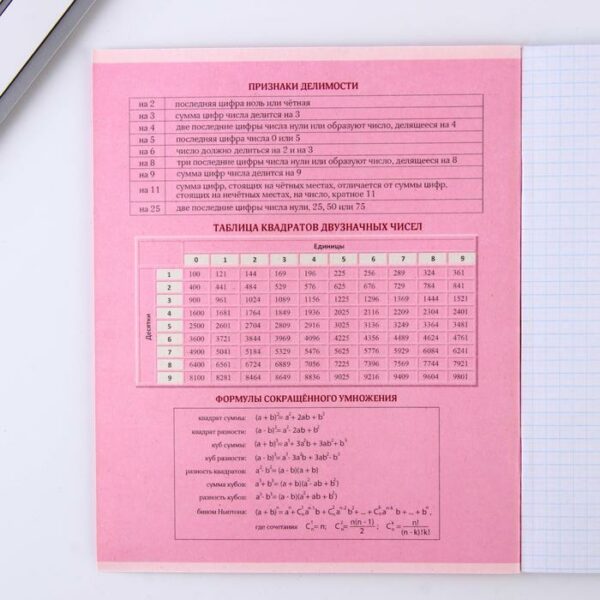 ПРИЗНАКИ ДЕЛИМОСТИ
на 2 последняя цифра ноль или чётная
на 3 сумма цифр числа делится на 3
на 4 две последние цифры числа нули или образуют число, делящееся на 4
на 5 последняя цифра числа 0 или 5
на 6 число должно делиться на 2 и на 3
на 8 три последние цифры числа нули или образуют число, делящееся на 8
на 9 сумма цифр числа делится на 9
на 11 сумма цифр, стоящих на чётных местах, отличается от суммы цифр,
стоящих на нечётных местах, на число, кратное 11
на 25 две последние цифры числа нули, 25, 50 или 75
ТАБЛИЦА КВАДРАТОВ ДВУЗНАЧНЫХ ЧИСЕЛ
Единицы
0 1 2 3 4 5 6 7 8 9
Десятки
1 100 121 144 169 196 225 256 289 324 361
2 400 441 484 529 576 625 676 729 784 841
3 900 961 1024 1089 1156 1225 1296 1369 1444 1521
4 1600 1681 1764 1849 1936 2025 2116 2209 2304 2401
5 2500 2601 2704 2809 2916 3025 3136 3249 3364 3481
6 3600 3721 3844 3969 4096 4225 4356 4489 4624 4761
7 4900 5041 5184 5329 5476 5625 5776 5929 6084 6241
8 6400 6561 6724 6889 7056 7225 7396 7569 7744 7921
9 8100 8281 8464 8649 8836 9025 9216 9409 9604 9801
ФОРМУЛЫ СОКРАЩЁННОГО УМНОЖЕНИЯ
квадрат суммы: (a + b)²= a²+ 2ab + b²
квадрат разности: (a - b)²= a²- 2ab + b²
куб суммы: (a + b)³= a³+ 3a²b + 3ab²+ b³
куб разности: (a - b)³= a³- 3a²b + 3ab²- b³
разность квадратов: a²- b²= (a - b)(a + b)
сумма кубов: a³+ b³= (a + b)(a²- ab + b²)
разность кубов: a³- b³= (a - b)(a²+ ab + b²)
бином Ньютона: (a + b)ⁿ= aⁿ+ Cₙ¹aⁿ⁻¹b + Cₙ²aⁿ⁻²b²+ ... + Cₙᵏaⁿ⁻ᵏb + ... + bⁿ,
где сочетания Cₙ¹= n; Cₙ²= n(n - 1)/2 ; Cₙᵏ= n!/(n - k)!k!